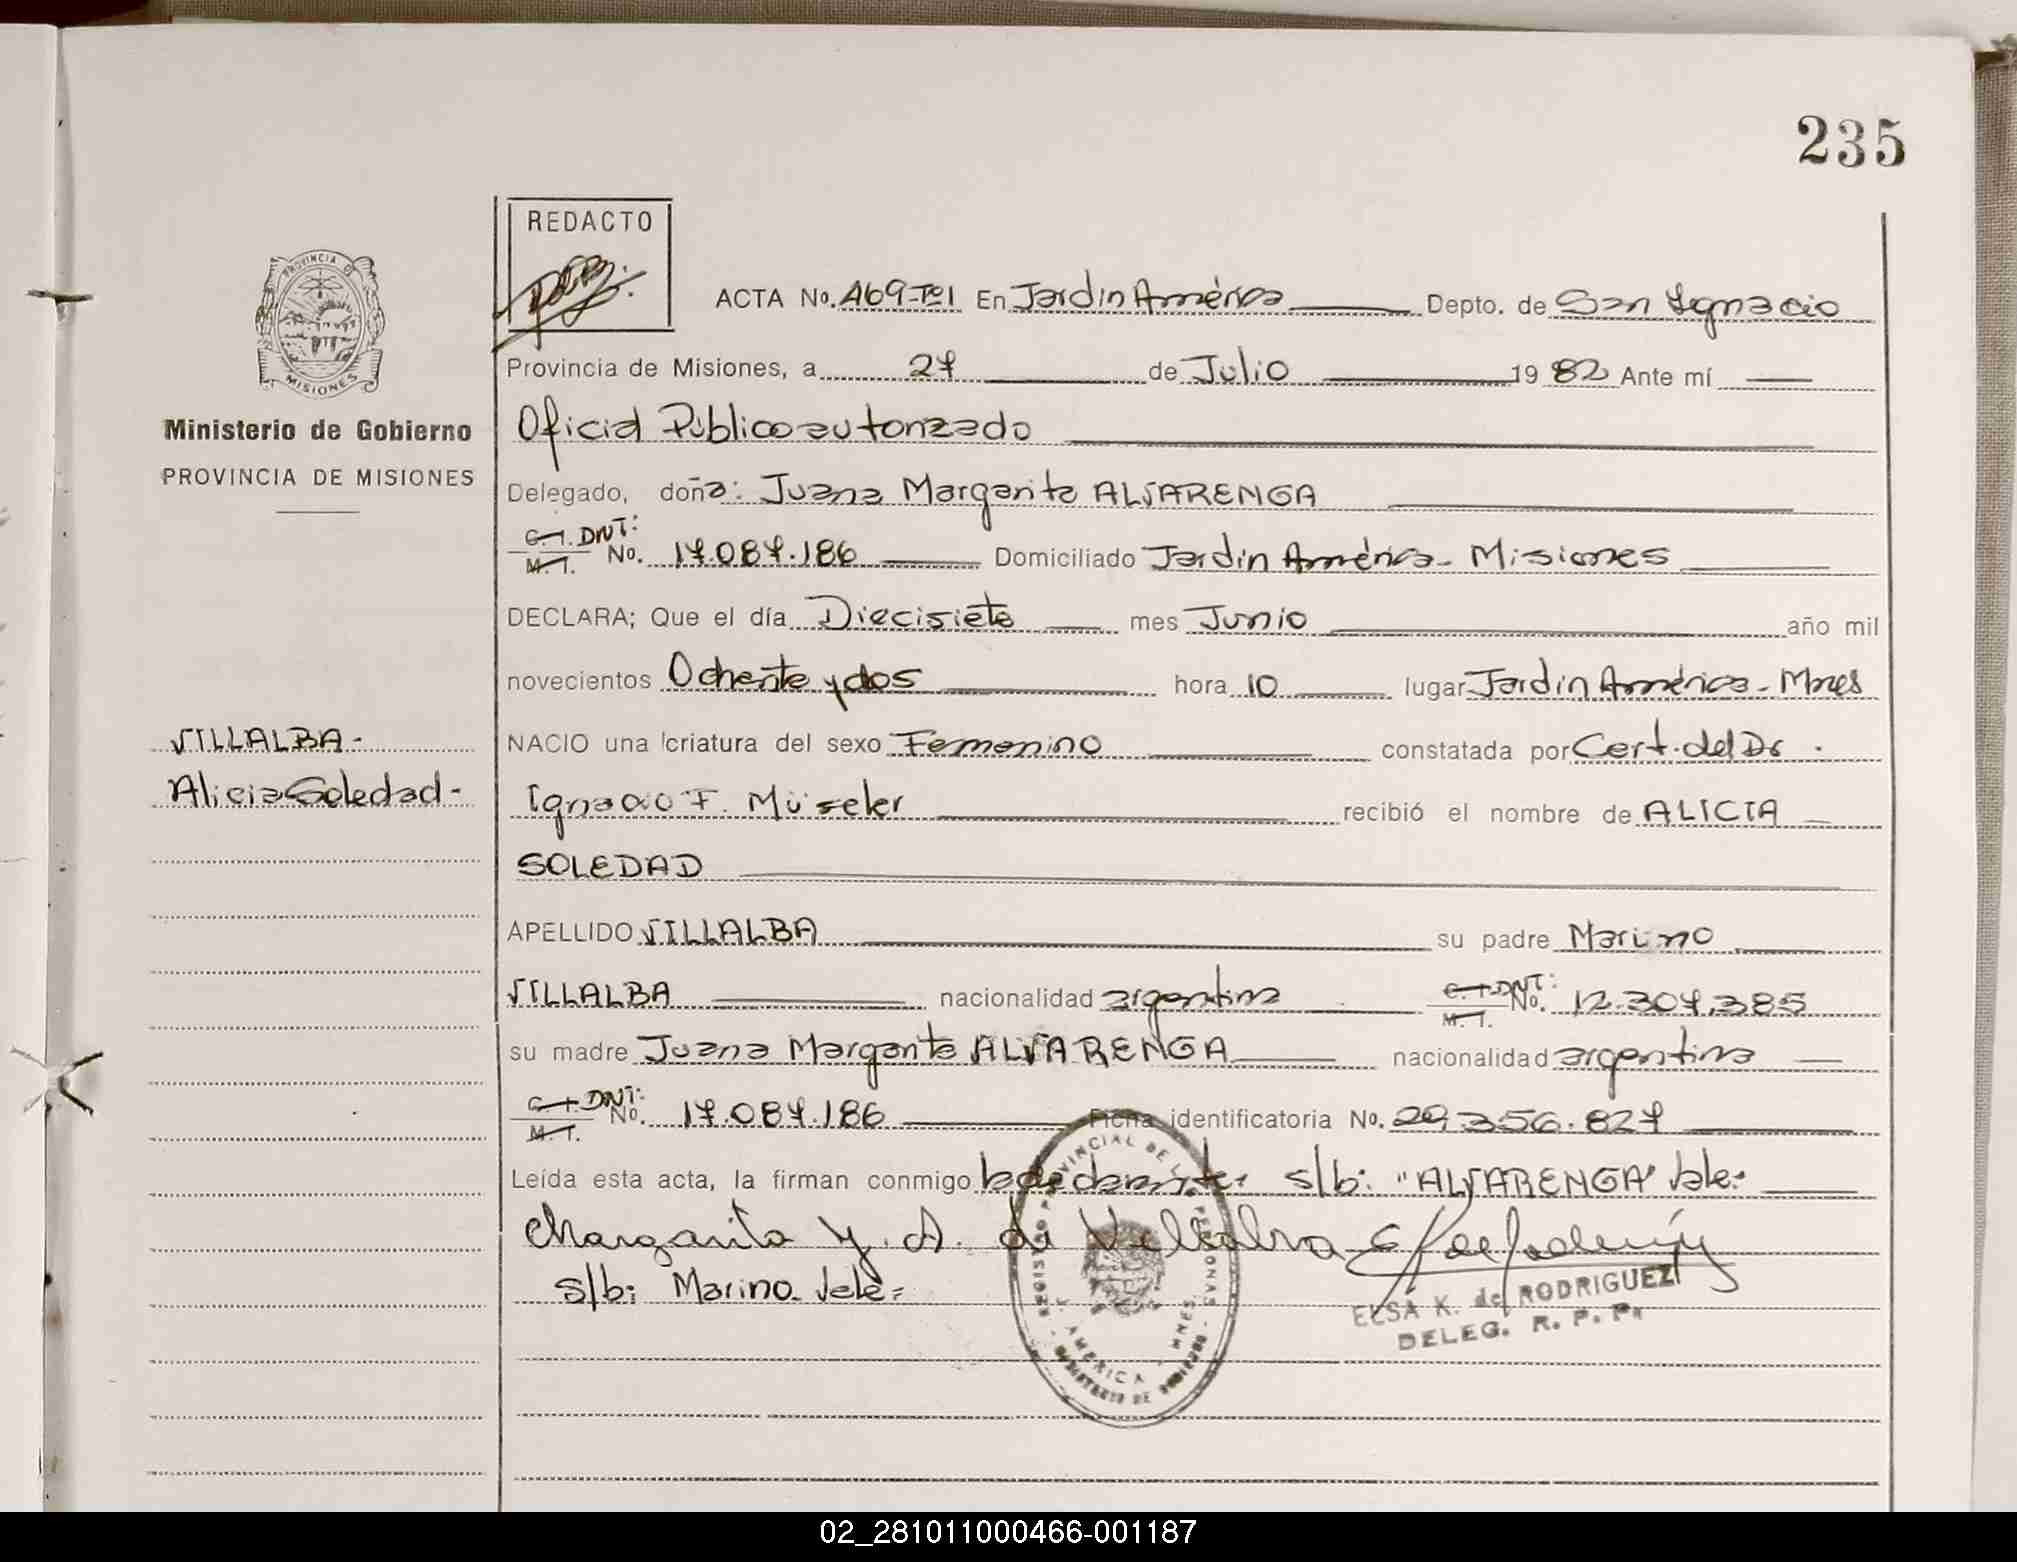 235
REDACTO
ACTA No. 469-Tº1 En Jardin América Depto. de San Ignacio
PROVINCIA DE MISIONES
Provincia de Misiones, a 27 de Julio 1982 Ante mí
Ministerio de Gobierno
Oficial Público autorizado
PROVINCIA DE MISIONES
Delegado, doña: Juana Margarita ALVARENGA
C. I. DNI: M. I. No. 17.087.186 Domiciliado Jardin América - Misiones
DECLARA; Que el día Diecisiete mes Junio año mil
novecientos Ochenta y dos hora 10 lugar Jardin América - Mnes
VILLALBA-
NACIO una criatura del sexo Femenino constatada por Cert. del Dr.
Alicia Soledad-
Ignacio F. Müseler recibió el nombre de ALICIA
SOLEDAD
APELLIDO VILLALBA su padre Marino
VILLALBA nacionalidad argentina C. I. DNI: M. I. No. 12.307.385
su madre Juana Margarita ALVARENGA nacionalidad argentina
C. I. DNI: M. I. No. 17.087.186 Ficha identificatoria No. 29.356.827
Leída esta acta, la firman conmigo la declarante. s/b: "ALVARENGA" Vale.
Margarita y. A. de Villalva
s/b: Marino Vale=
REGISTRO PROVINCIAL DE LAS PERSONAS
AMERICA - MNES
MINISTERIO DE GOBIERNO
ELSA K. de RODRIGUEZ
DELEG. R. P. P.
02_281011000466-001187